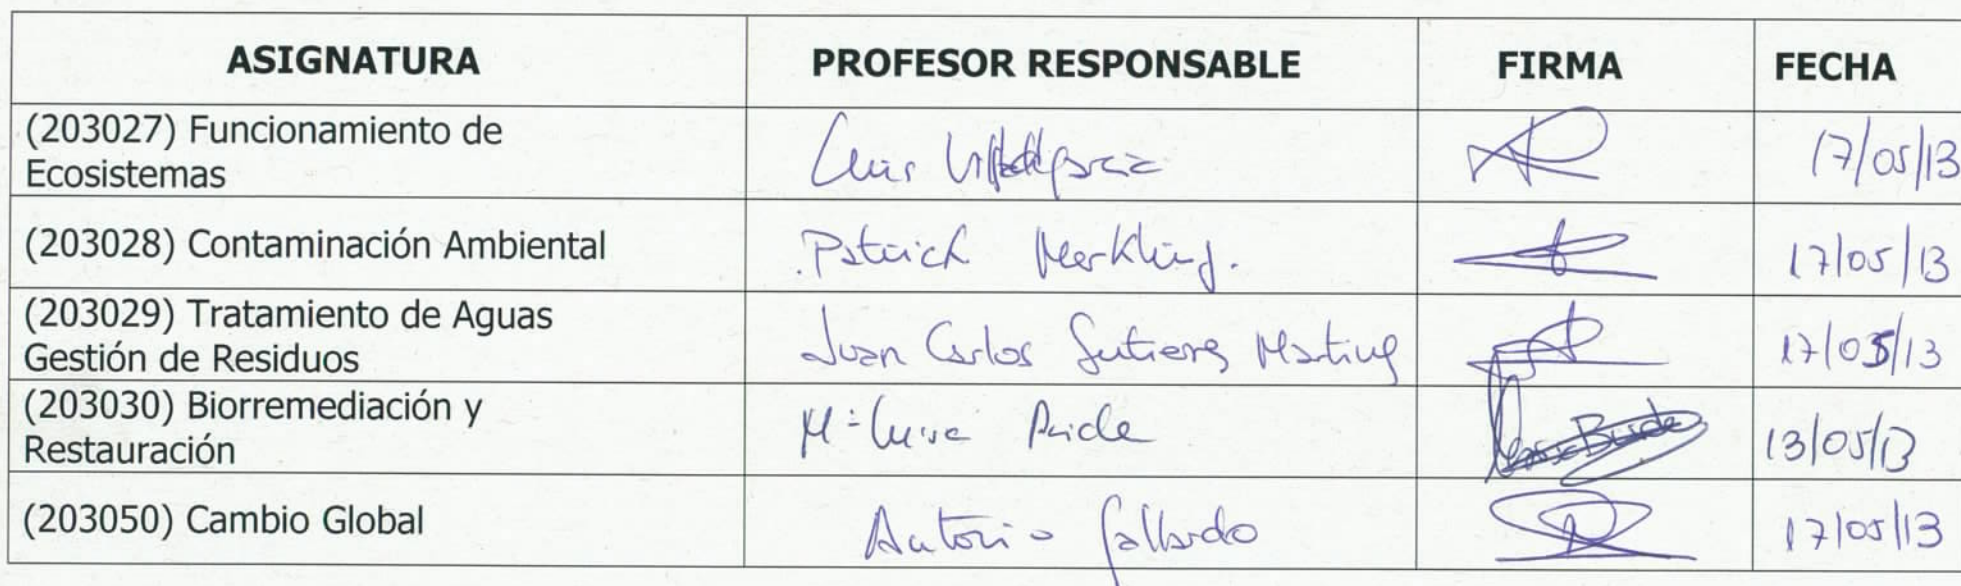 ASIGNATURA PROFESOR RESPONSABLE FIRMA FECHA
(203027) Funcionamiento de
Ecosistemas
Luis 17/05/13
(203028) Contaminación Ambiental Patrick Merkling. 17/05/13
(203029) Tratamiento de Aguas
Gestión de Residuos
Juan Carlos Gutierrez Martinez 17/05/13
(203030) Biorremediación y
Restauración
Mª Luisa 13/05/13
(203050) Cambio Global Antonio Gallardo 17/05/13